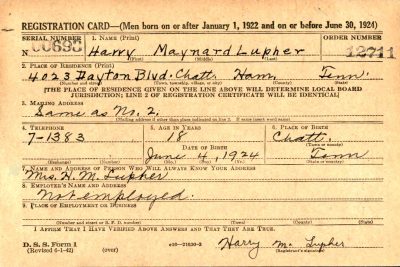 REGISTRATION CARD—(Men born on or after January 1, 1922 and on or before June 30, 1924)
SERIAL NUMBER 1. NAME (Print) ORDER NUMBER
Harry Maynard Lupher 12711
(First) (Middle) (Last)
2. PLACE OF RESIDENCE (Print)
4023 Dayton Blvd. Chatt. Ham. Tenn.
(Number and street) (Town, township, village, or city) (County) (State)
[THE PLACE OF RESIDENCE GIVEN ON THE LINE ABOVE WILL DETERMINE LOCAL BOARD
JURISDICTION; LINE 2 OF REGISTRATION CERTIFICATE WILL BE IDENTICAL]
3. MAILING ADDRESS
Same as No. 2
(Mailing address if other than place indicated on line 2. If same insert word same)
4. TELEPHONE 5. AGE IN YEARS 6. PLACE OF BIRTH
7-1383 18 Chatt.
DATE OF BIRTH (Town or county)
June 4, 1924 Tenn
(Exchange) (Number) (Mo.) (Day) (Yr.) (State or country)
7. NAME AND ADDRESS OF PERSON WHO WILL ALWAYS KNOW YOUR ADDRESS
Mrs. H. M. Lupher
8. EMPLOYER'S NAME AND ADDRESS
Not employed.
9. PLACE OF EMPLOYMENT OR BUSINESS
(Number and street or R. F. D. number) (Town) (County) (State)
I AFFIRM THAT I HAVE VERIFIED ABOVE ANSWERS AND THAT THEY ARE TRUE.
D. S. S. Form 1
(Revised 6-1-42) (over) Harry M. Lupher
(Registrant's signature)